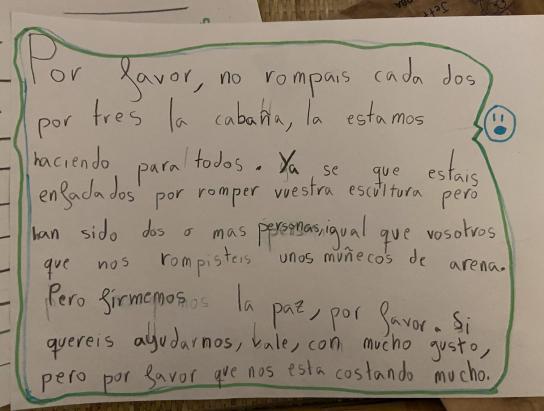 Por favor, no rompais cada dos
por tres la cabaña, la estamos
haciendo para todos. Ya se que estais
enfadados por romper vuestra escultura pero
han sido dos o mas personas, igual que vosotros
que nos rompisteis unos muñecos de arena.
Pero firmemos la paz, por favor. Si
quereis ayudarnos, vale, con mucho gusto,
pero por favor que nos esta costando mucho.